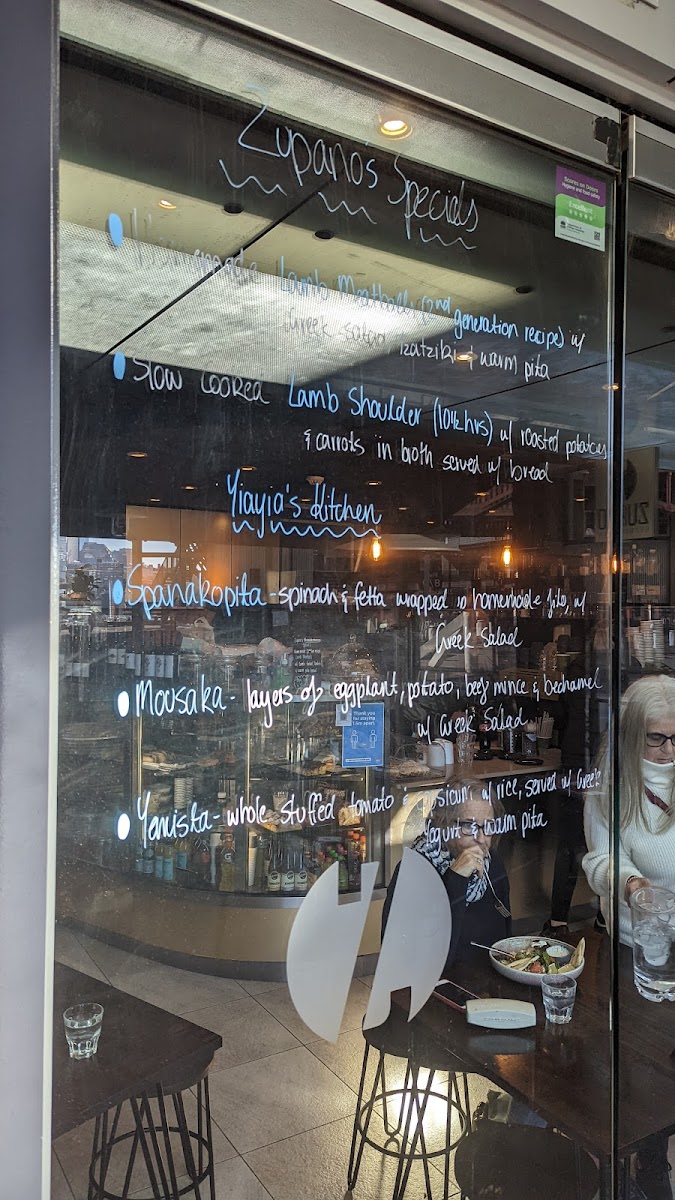 Zupano's Specials
Homemade Lamb Meatballs (2nd generation recipe) w/
Greek salad, tzatziki & warm pita
Slow cooked Lamb Shoulder (10½hrs) w/ roasted potatoes
& carrots in broth served w/ bread
Yiayia's Kitchen
Spanakopita - spinach & fetta wrapped in homemade filo, w/
Greek Salad
Mousaka - layers of eggplant, potato, beef mince & bechamel
w/ Greek Salad
Yemista - whole stuffed tomato & capsicum w/ rice, served w/ Greek
Yogurt & warm pita
Scores on Doors
Hygiene and food safety
Excellent
Thank you
for staying
1.5m apart.